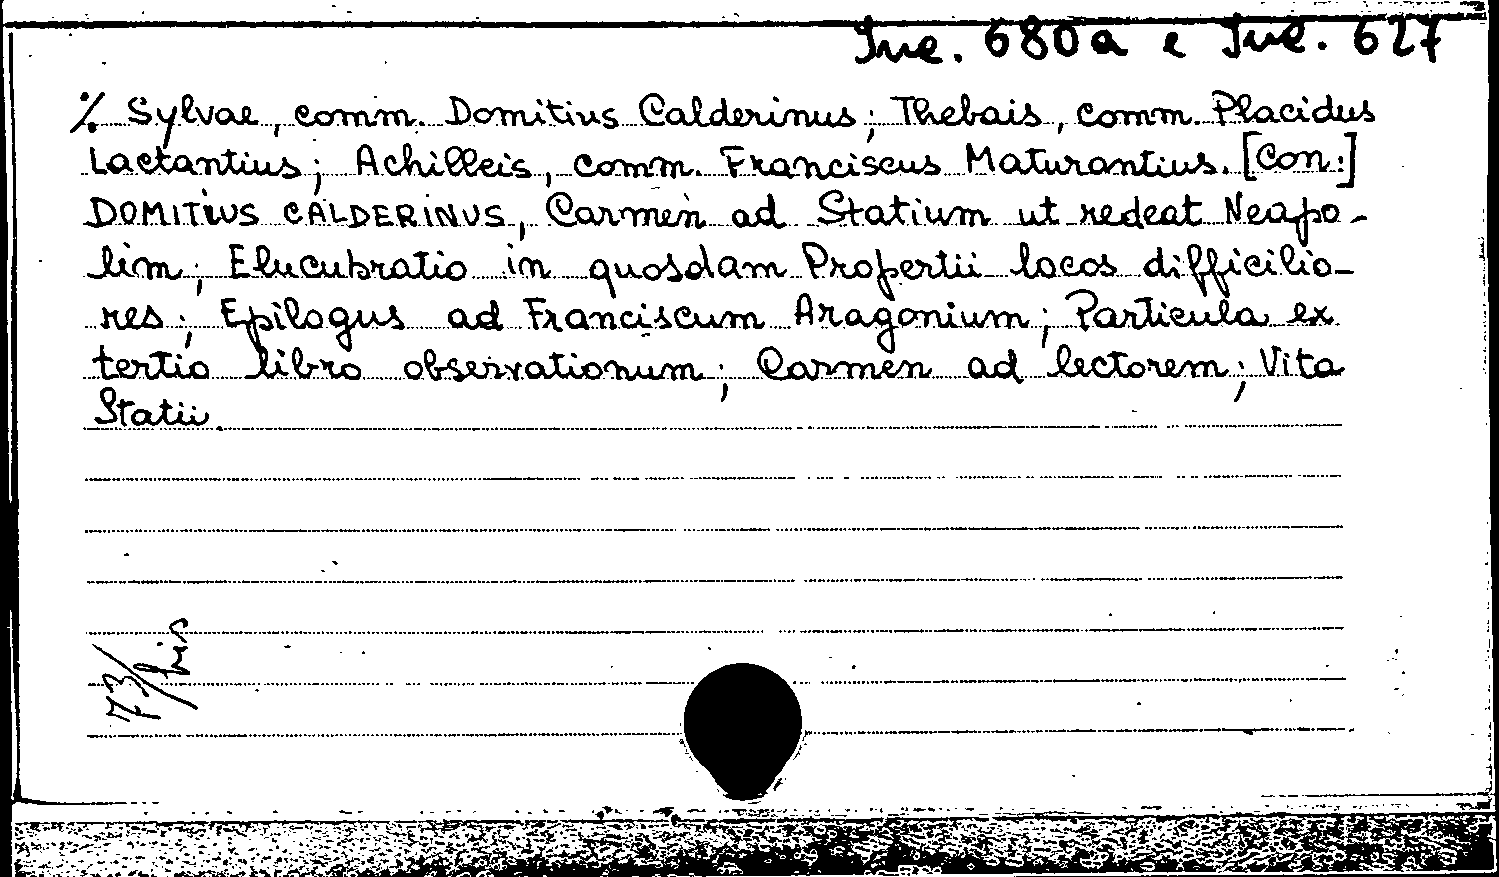 Inc. 680a e Inc. 627
./. Sylvae, comm. Domitius Calderinus; Thebais, comm. Placidus
Lactantius; Achilleis, comm. Franciscus Maturantius. [Con:]
DOMITIUS CALDERINUS, Carmen ad Statium ut redeat Neapo-
lim; Elucubratio in quosdam Propertii locos difficilio-
res; Epilogus ad Franciscum Aragonium; Particula ex
tertio libro observationum; Carmen ad lectorem; Vita
Statii.
73/bis